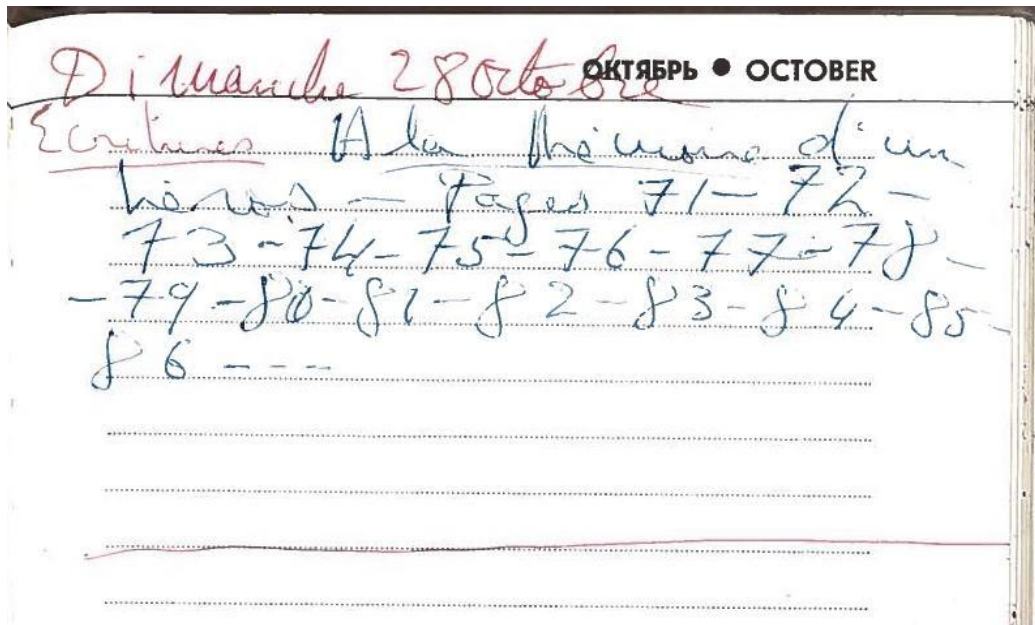 Dimanche 28 Octobre
ОКТЯБРЬ ● OCTOBER
Ecritures A la Mémoire d'un
héros — Pages 71 - 72 -
73 - 74 - 75 - 76 - 77 - 78 -
- 79 - 80 - 81 - 82 - 83 - 84 - 85 -
86 - - -